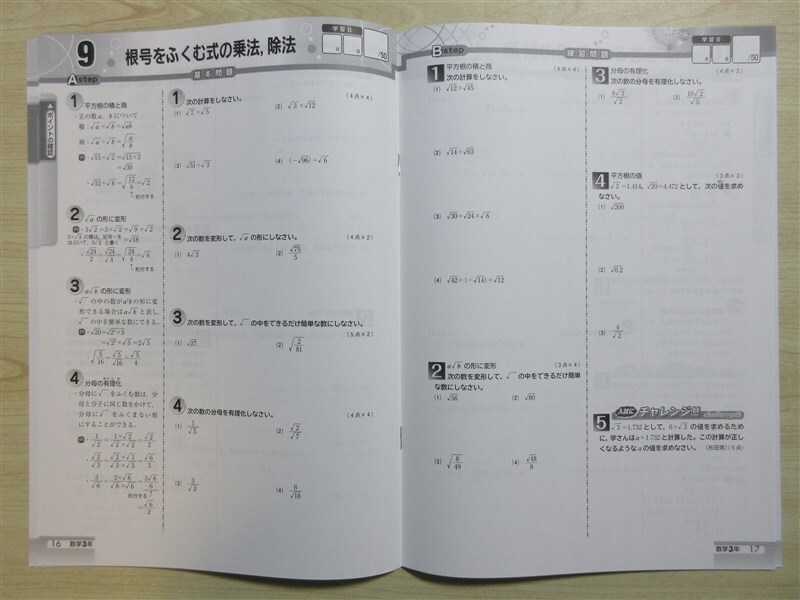 9 根号をふくむ式の乗法, 除法
学習日
月 日 /50
Astep
基本問題
▲ポイントの確認
1 平方根の積と商
・正の数a, bについて
積：√a×√b=√ab
商：√a÷√b=√(a/b)
例・√15×√2=√15×2
=√30
・√12÷√6=√(12/6)=√2
↑約分する
2 √aの形に変形
例・3√2=3×√2=√9×√2
=√18
・√24/2=√24/√4=√(24/4)=√6
↑約分する
3 a√bの形に変形
・√ の中の数がa²bの形に変
形できる場合はa√bと表し,
√ の中を簡単な数にできる。
例・√20=√2²×5
=√2²×√5=2√5
・√(5/16)=√5/√16=√5/4
4 分母の有理化
・分母に√ をふくむ数は, 分
母と分子に同じ数をかけて,
分母に√ をふくまない形
にすることができる。
例・1/√2=1×√2/√2×√2=√2/2
・√2/√3=√2×√3/√3×√3=√6/3
・3/√6=3×√6/√6×√6=3√6/6
約分する
=√6/2
1 次の計算をしなさい。 (4点×4)
(1) √7×√5 (2) √3×√12
(3) √51÷√3 (4) (−√96)÷√6
2 次の数を変形して, √aの形にしなさい。 (4点×2)
(1) 4√3 (2) √75/5
3 次の数を変形して, √ の中をできるだけ簡単な数にしなさい。
(5点×2)
(1) √27 (2) √(2/81)
4 次の数の分母を有理化しなさい。 (4点×4)
(1) 1/√3 (2) √2/√7
(3) 3/√3 (4) 6/√18
16 数学3年
Bstep
練習問題
学習日
月 日 /50
1 平方根の積と商
次の計算をしなさい。 (4点×4)
(1) √12×√45
(2) √14×√63
(3) √30÷√24×√8
(4) √42÷(−√14)×√12
2 a√bの形に変形 (3点×4)
次の数を変形して, √ の中をできるだけ簡単
な数にしなさい。
(1) √56 (2) √80
(3) √(8/49) (4) √48/8
3 分母の有理化 (4点×2)
次の数の分母を有理化しなさい。
(1) 6√3/√2 (2) 10√2/√5
4 平方根の値 (3点×3)
√2=1.414, √20=4.472として, 次の値を求め
なさい。
(1) √200
(2) √0.2
(3) 4/√2
5 入試にチャレンジ!!
challenge!!
√3=1.732として, 6÷√3の値を求めるため
に, 学さんはa×1.732と計算した。この計算が正し
くなるようなaの値を求めなさい。 (秋田県)(5点)
数学3年 17